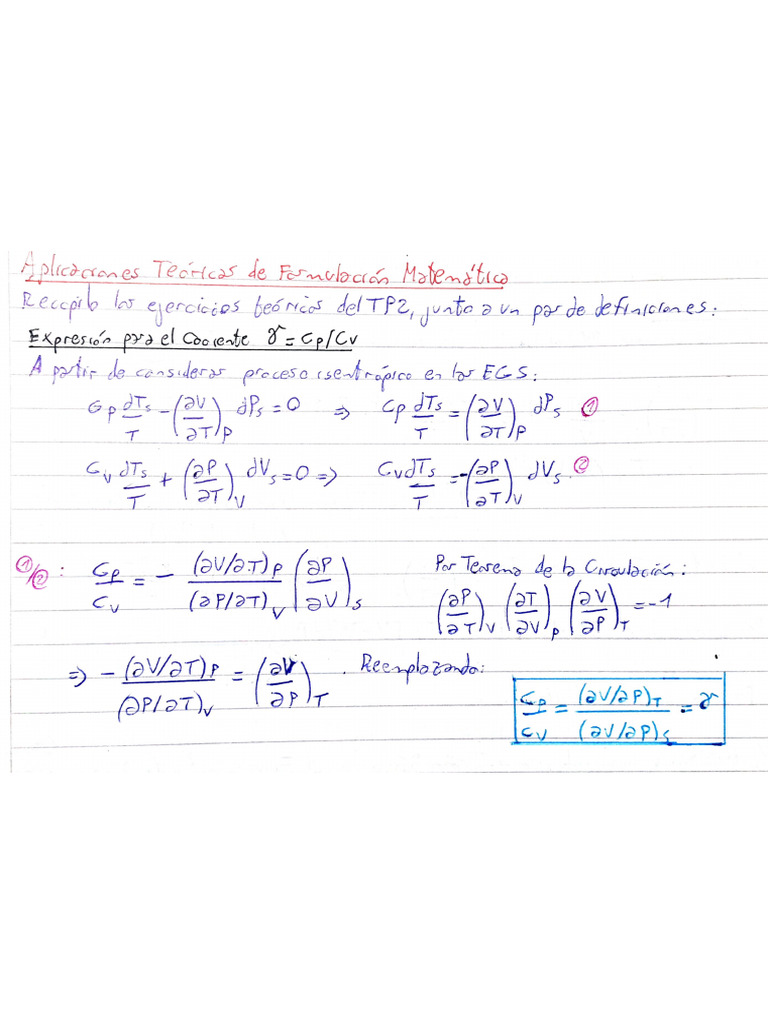 Aplicaciones Teóricas de Formulación Matemática
Recopilo los ejercicios teóricos del TP2, junto a un par de definiciones:
Expresión para el Cociente γ = Cp/Cv
A partir de considerar proceso isentrópico en las EGS:
Cp dTs/T - (∂V/∂T)P dPs = 0 ⇒ Cp dTs/T = (∂V/∂T)P dPs ①
Cv dTs/T + (∂P/∂T)V dVs = 0 ⇒ Cv dTs/T = -(∂P/∂T)V dVs ②
①/②: Cp/Cv = - (∂V/∂T)P/(∂P/∂T)V (∂P/∂V)S
Por Teorema de la Circulación:
(∂P/∂T)V (∂T/∂V)P (∂V/∂P)T = -1
⇒ - (∂V/∂T)P/(∂P/∂T)V = (∂V/∂P)T . Reemplazando:
Cp/Cv = (∂V/∂P)T/(∂V/∂P)S = γ